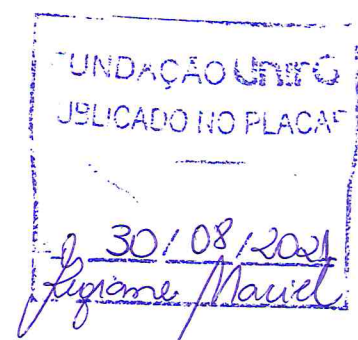 FUNDAÇÃO UnirG
PUBLICADO NO PLACAR
30/08/2021
Maciel